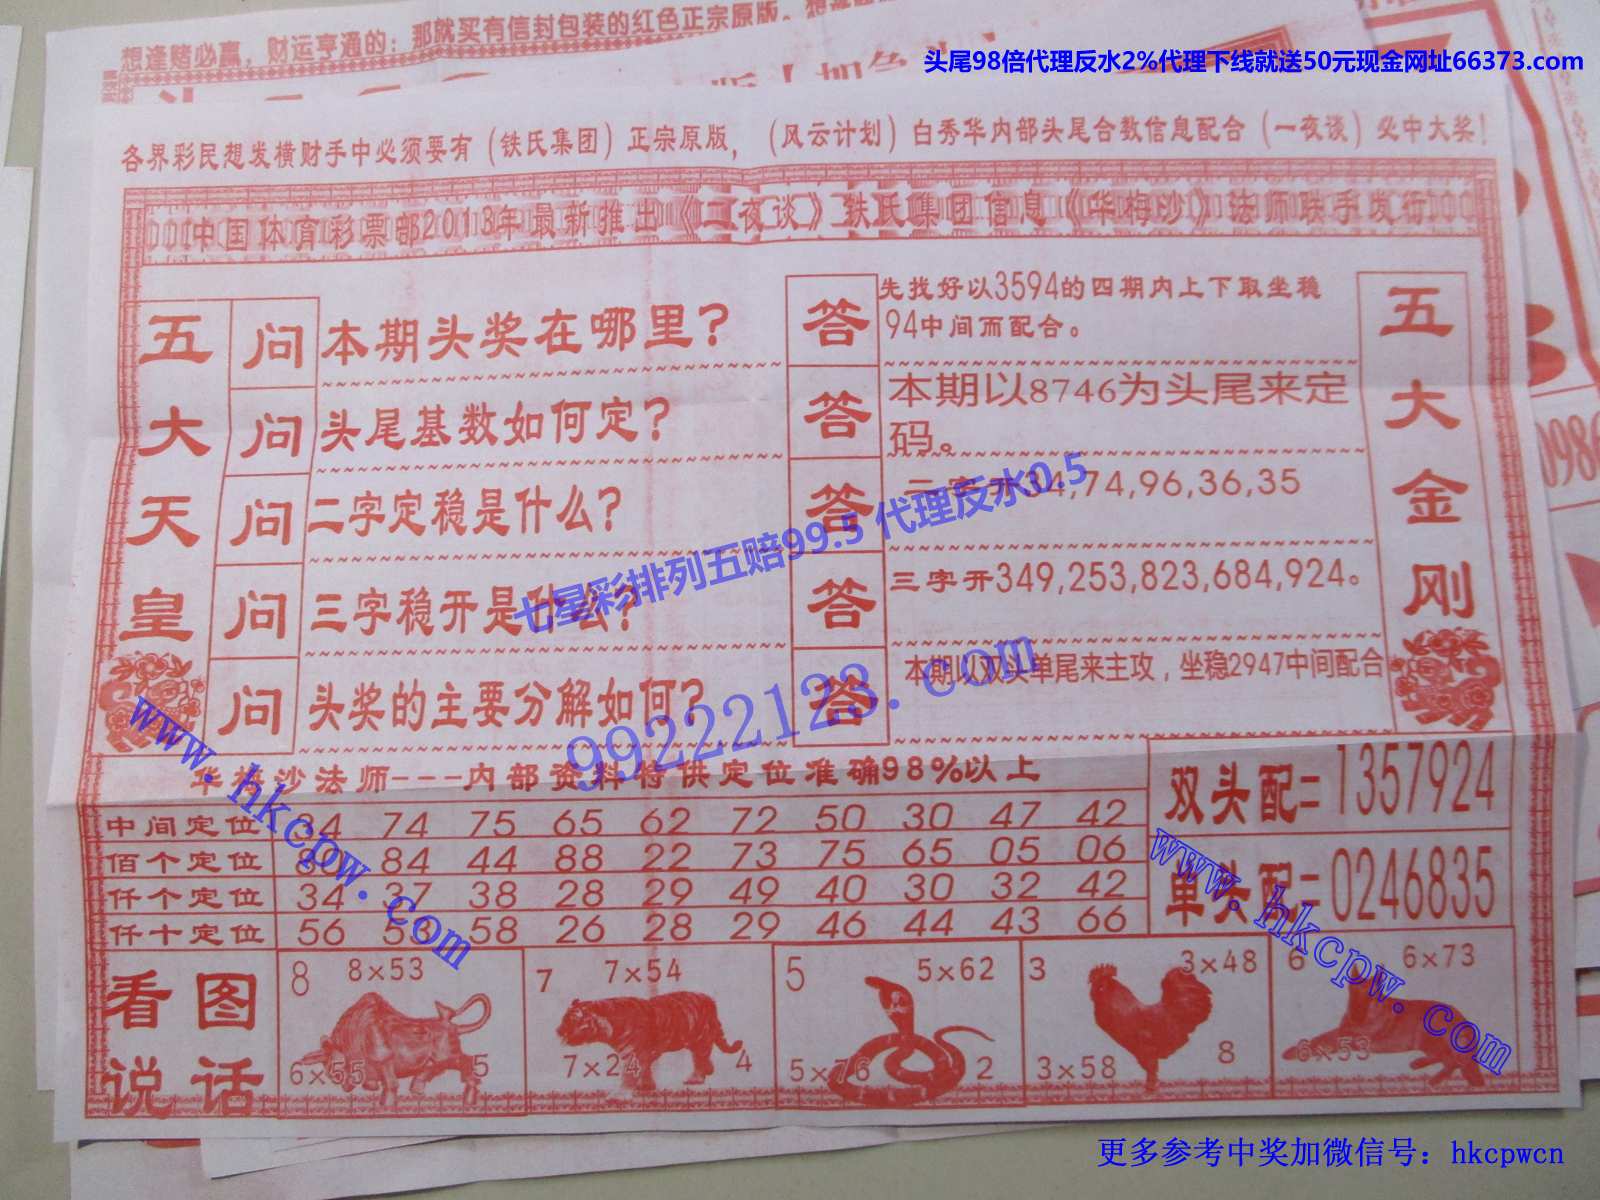 想逢赌必赢，财运亨通的：那就买有信封包装的红色正宗原版。
头尾98倍代理反水2%代理下线就送50元现金网址66373.com
各界彩民想发横财手中必须要有（铁氏集团）正宗原版，（风云计划）白秀华内部头尾合数信息配合（一夜谈）必中大奖！
中国体育彩票部2013年最新推出《一夜谈》铁氏集团信息《华梅沙》法师联手发行
五大天皇
问 本期头奖在哪里？
答 先找好以3594的四期内上下取坐稳
94中间而配合。
问 头尾基数如何定？
答 本期以8746为头尾来定
码。
问 二字定稳是什么？
答 二字开34,74,96,36,35
问 三字稳开是什么？
答 三字开349,253,823,684,924。
问 头奖的主要分解如何？
答 本期以双头单尾来主攻，坐稳2947中间配合
五大金刚
七星彩排列五赔99.5 代理反水0.5
99222123.com
www.hkcpw.com
华梅沙法师---内部资料特供定位准确98%以上
中间定位 34 74 75 65 62 72 50 30 47 42
佰个定位 80 84 44 88 22 73 75 65 05 06
仟个定位 34 37 38 28 29 49 40 30 32 42
仟十定位 56 53 58 26 28 29 46 44 43 66
双头配=1357924
单头配=0246835
www.hkcpw.com
看图说话
8 8×53
6×55 5
7 7×54
7×24 4
5 5×62
5×76 2
3 3×48
3×58 8
6 6×73
6×53
更多参考中奖加微信号：hkcpwcn